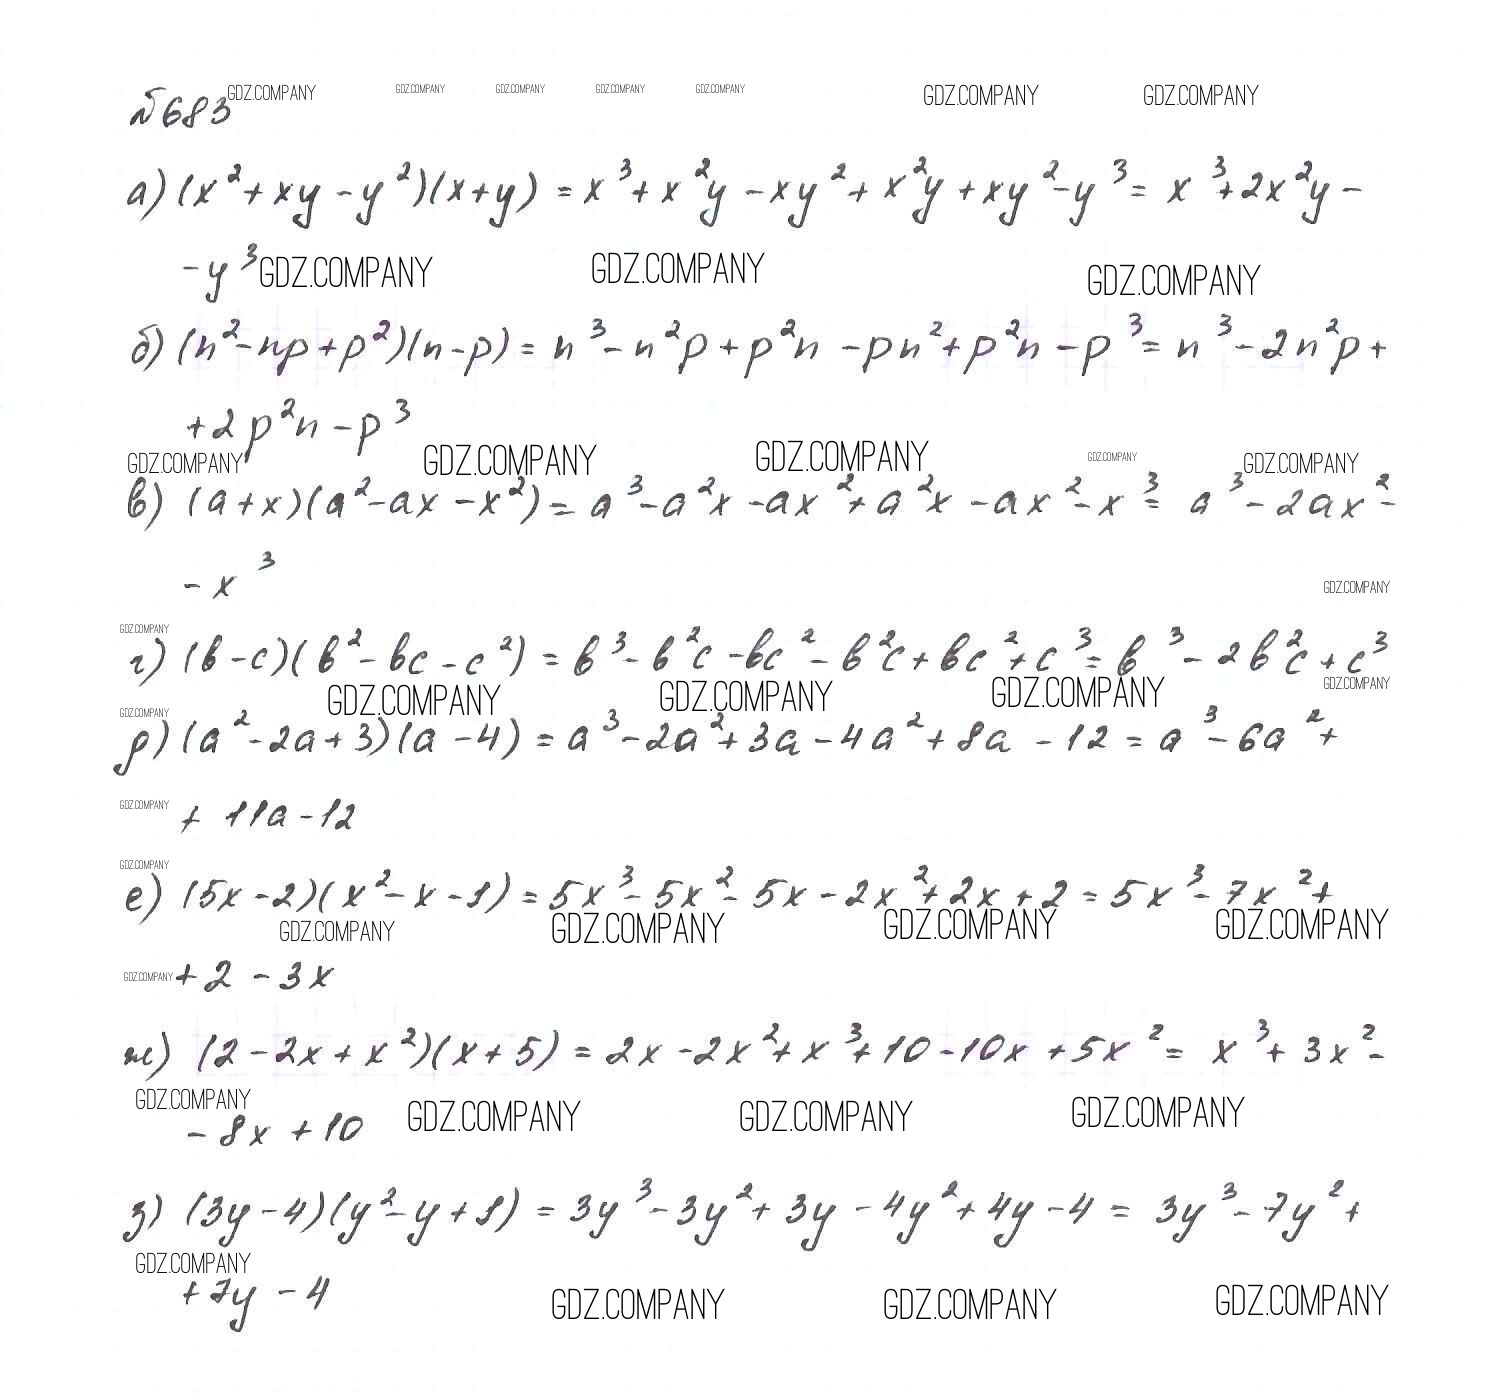 №683 GDZ.COMPANY GDZ.COMPANY GDZ.COMPANY GDZ.COMPANY GDZ.COMPANY GDZ.COMPANY GDZ.COMPANY
а) (x²+xy-y²)(x+y) = x³+x²y-xy²+x²y+xy²-y³= x³+2x²y-
-y³ GDZ.COMPANY GDZ.COMPANY GDZ.COMPANY
б) (n²-np+p²)(n-p) = n³-n²p+p²n-pn²+p²n-p³= n³-2n²p+
+2p²n-p³
GDZ.COMPANY GDZ.COMPANY GDZ.COMPANY GDZ.COMPANY GDZ.COMPANY
в) (a+x)(a²-ax-x²) = a³-a²x-ax²+a²x-ax²-x³= a³-2ax²-
-x³
GDZ.COMPANY
GDZ.COMPANY
г) (b-c)(b²-bc-c²) = b³-b²c-bc²-b²c+bc²+c³= b³-2b²c+c³
GDZ.COMPANY GDZ.COMPANY GDZ.COMPANY GDZ.COMPANY
GDZ.COMPANY
д) (a²-2a+3)(a-4) = a³-2a²+3a-4a²+8a-12 = a³-6a²+
GDZ.COMPANY + 11a-12
GDZ.COMPANY
е) (5x-2)(x²-x-1) = 5x³-5x²-5x-2x²+2x+2 = 5x³-7x²+
GDZ.COMPANY GDZ.COMPANY GDZ.COMPANY GDZ.COMPANY
GDZ.COMPANY +2-3x
ж) (2-2x+x²)(x+5) = 2x-2x²+x³+10-10x+5x²= x³+3x²-
GDZ.COMPANY GDZ.COMPANY GDZ.COMPANY GDZ.COMPANY
-8x+10
з) (3y-4)(y²-y+1) = 3y³-3y²+3y-4y²+4y-4 = 3y³-7y²+
GDZ.COMPANY
+7y-4 GDZ.COMPANY GDZ.COMPANY GDZ.COMPANY